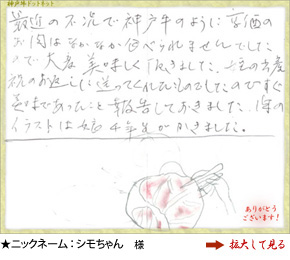 神戸牛ドットネット
最近の不況で神戸牛のように高価の
お肉はなかなか食べられませんでした
ので大変美味しく頂きました。姪の出産
祝のお返しに送ってくれたものでしたのですぐ
美味であったこと報告しておきました。
イラストは娘4年生がかきました。
ありがとう
ございます!
★ニックネーム：シモちゃん 様
拡大して見る